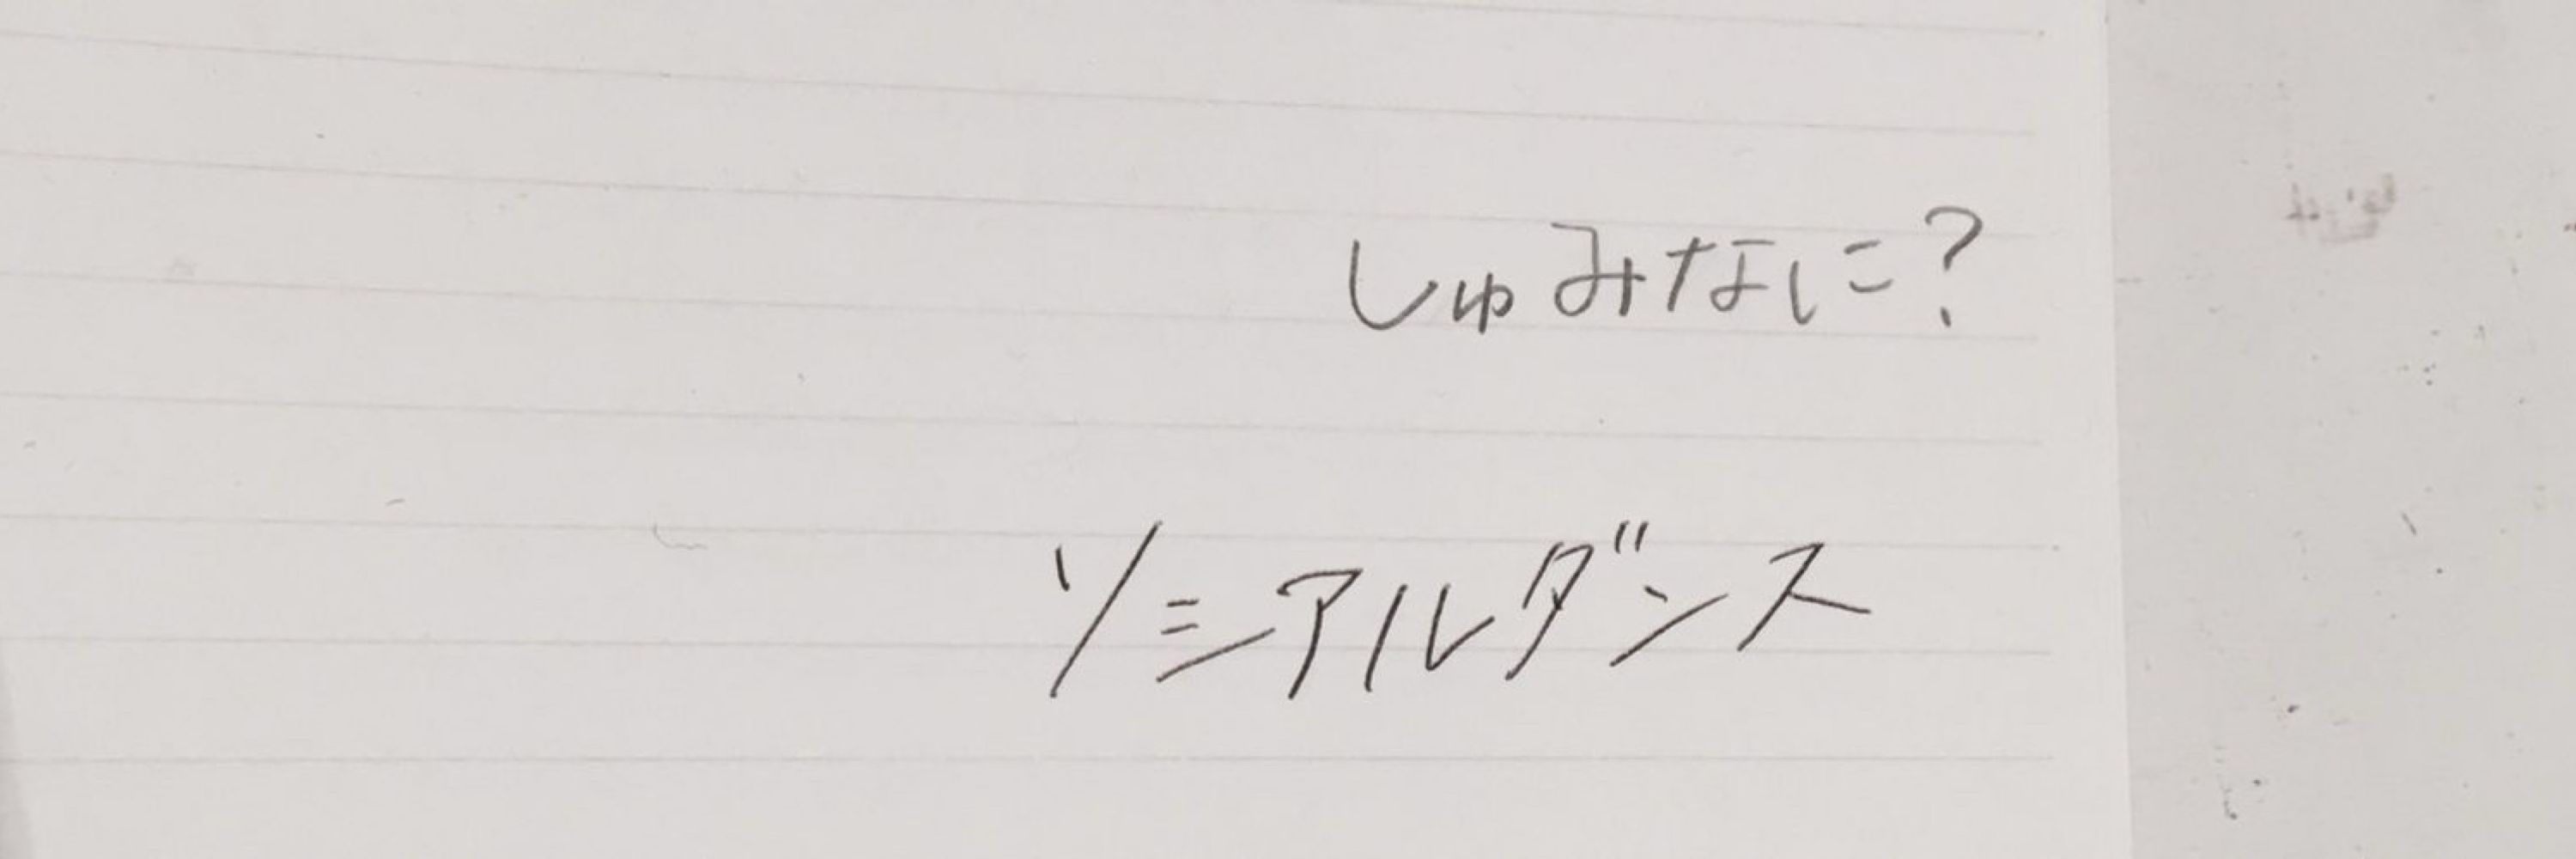 しゅみなに?
ソシアルダンス